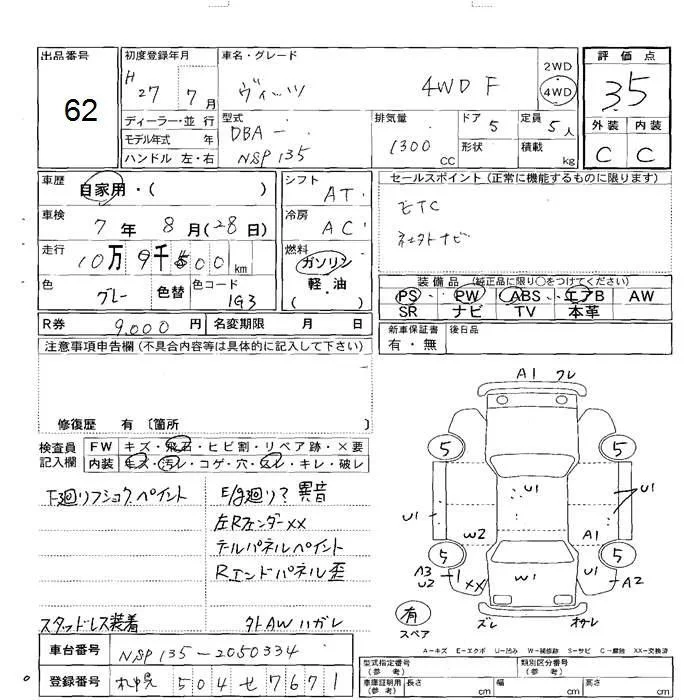 出品番号
62
初度登録年月
H 27 7月
車名・グレード
ヴィッツ 4WD F
2WD
4WD
評価点
35
外装 内装
C C
ディーラー・並行
モデル年式 年
ハンドル 左・右
型式
DBA-
NSP135
排気量
1300 cc
ドア 5
形状
定員 5人
積載 kg
車歴
自家用・( )
シフト
AT
セールスポイント(正常に機能するものに限ります)
ETC
車検
7年 8月(28日)
冷房
AC
走行
10万9千500km
燃料
ガソリン
軽・油
( )
色
グレー
色替
色コード
1G3
装備品(純正品に限り○をつけてください)
PS PW ABS エアB AW
SR ナビ TV 本革
R券 9,000円
名変期限 月 日
新車保証書
有・無
後日品
注意事項申告欄(不具合内容等は具体的に記入して下さい)
修復歴 有〔箇所 〕
検査員
記入欄
FW キズ・飛石・ヒビ割・リペア跡・×要
内装 キズ・汚レ・コゲ・穴・スレ・キレ・破レ
下廻リフショクペイント
E/g廻リ?異音
左Rフェンダー××
テルパネルペイント
Rエンドパネル歪
スタッドレス装着
外AWハガレ
車台番号
NSP135-2050334
登録番号
札幌 504 せ 7671
A1 クレ
5 5
U1 U1 U1
W2 A1
5 5
A3
U2
XX W1 U1 A2
有
スペア
ズレ
A-キズ E-エクボ U-凹み W-補修跡 S-サビ C-腐蝕 XX-交換済
型式指定番号
(参考)
類別区分番号
(参考)
車庫証明用
(参考)
長さ cm 幅 cm 高さ cm